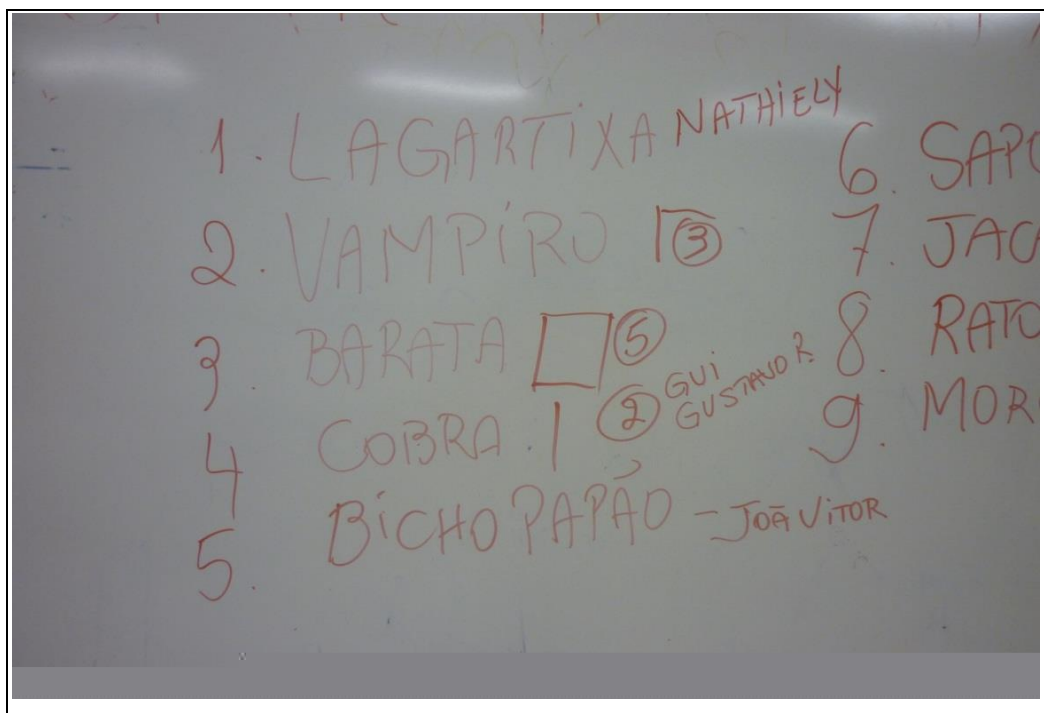 1. LAGARTIXA NATHIELY
2. VAMPIRO 3
3. BARATA 5
4 COBRA 2 GUI
GUSTAVO R.
5. BICHO PAPÃO - JOÃ VITOR
6. SAPO
7. JAC
8. RATO
9. MOR